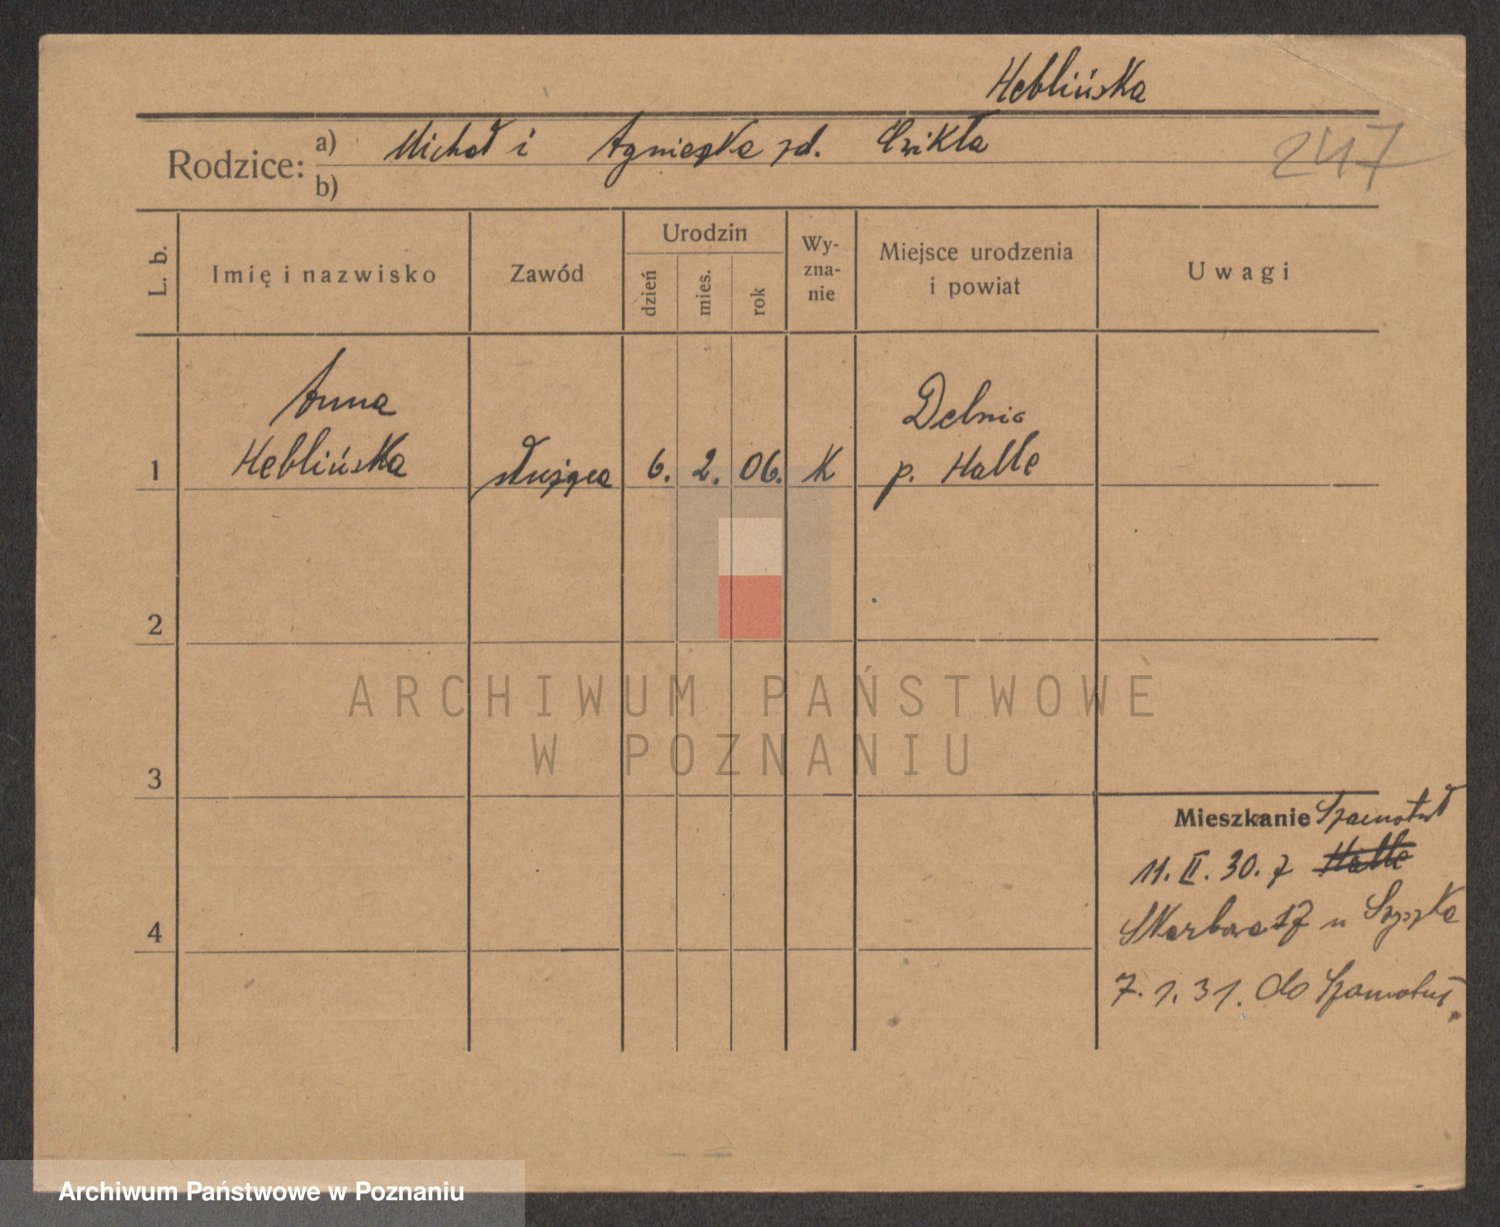 Heblińska
Rodzice: a) Michał i Agnieszka zd. Ćwikła
b)
247
L. b.
Imię i nazwisko
Zawód
Urodzin
dzień
mies.
rok
Wy-
zna-
nie
Miejsce urodzenia
i powiat
Uwagi
Anna
Heblińska
1
służąca
6. 2. 06. K
p. Halle
2
3
4
Mieszkanie Szamotuł
11. II. 30. z Halle
Skarbowa 17 u
7. 1. 31. do Szamotuł
ARCHIWUM PAŃSTWOWE
W POZNANIU
Archiwum Państwowe w Poznaniu